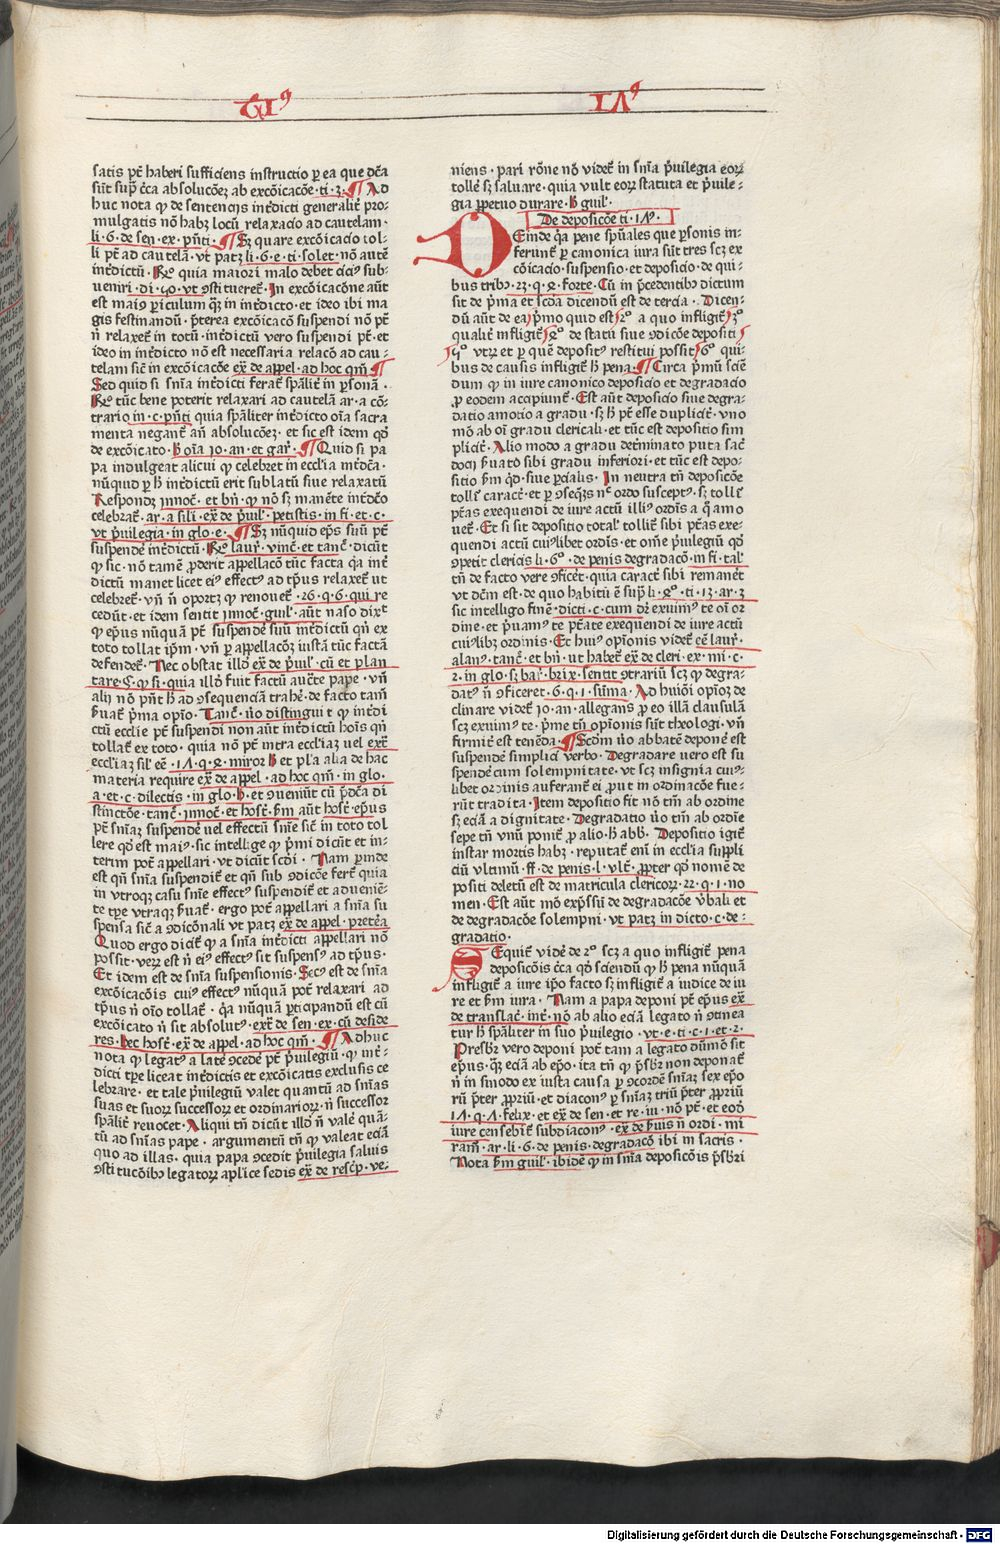 satis pt̄ haberi sufficiens instructio ꝑ ea que dc̄a
sūt sup̄ c̄ca absolucōeꝫ ab excōicacōe · ti · 3 · ¶ Ad
huc nota ꝙ de sentencijs int̄dicti generalit̄ pro⸗
mulgatis nō habꝫ locū relaxacio ad cautelam ·
li · 6 · de sen · ex · p̄nti · ¶ Sꝫ quare excōicacio tol⸗
li pt̄ ad cautelā · vt patꝫ li · 6 · e · ti · solet · nō autē
int̄dictū · Rō quia maiori malo debet
ueniri · di · 40 · vt ꝯstitueret̄ · In excōicacōne aūt
est maiꝰ ꝑiculum qꝫ in int̄dicto · et ideo ibi ma
gis festinandū · p̄terea excōicacō suspendi nō pt̄
n̄ relaxet̄ in totū · int̄dictū vero suspendi pt̄ · et
ideo in int̄dicto nō est necessaria relacō ad cau⸗
telam sic̄ in excōicacōe ex̄ de appel · ad hoc qm̄ ¶
Sed quid si sn̄ia int̄dicti ferat̄ spālit̄ in ꝑsonā ·
Rō tūc bene poterit relaxari ad cautelā ar · a cō⸗
trario in · c · p̄nti quia spāliter int̄dicto oīa sacra
menta negant̄ an̄ absolucōeꝫ · et sic est idem qd̄
de excōicato · h̄ oīa Jo · an · et gar̄ · ¶ Quid si pa
pa indulgeat alicui ꝙ celebret in ecclīa int̄dcā ·
nūquid ꝑ h̄ int̄dictū erit sublatū siue relaxatū
Respondꝫ Innoc̄ · et bn̄ · ꝙ nō sꝫ manēte int̄dco
celebrat̄ · ar · a sili · ex̄ de p̄uil · petistis · in fi · et · c ·
vt p̄uilegia · in glo · e · ¶ Sꝫ nūquid ep̄s suū pt̄
suspende int̄dictū · Rō laur̄ · vinc̄ · et tanc̄ · dicūt
ꝙ sic · nō tamē ꝓderit appellacō tūc facta qa int̄
dictū manet licet eiꝰ effectꝰ ad tp̄us relaxet̄ ut
celebret̄ · vn̄ n̄ oportꝫ ꝙ renouet̄ · 26 · q · 6 · qui re
cedūt · et idem sentit Innoc̄ · guil̄ · aūt naso dixt̄
ꝙ ep̄us nūquā pt̄ suspende suū int̄dictū qn̄ ex
toto tollat ip̄m · vn̄ ꝑ appellacōꝫ iustā tūc factā
defendet̄ · Nec obstat illd̄ ex̄ de p̄uil̄ · cū et plan
tare · § · ꝙ si · quia illd̄ fuit factū aucte pape · vn̄
alij nō pn̄t h̄ ad ꝯsequenciā trahē · de facto tam̄
h̄uat̄ p̄ma opīo · Tanc̄ · vō distinguit ꝙ int̄di
ctū ecclie pt̄ suspendi non aūt int̄dictū hoīs qn̄
tollat̄ ex toto · quia nō pt̄ intra eccliaꝫ uel ext̄
eccl̄iaꝫ sil̄ eē · 17 · q · 2 · miror h̄ et pl'a alia de hac
materia require ex̄ de appel · ad hoc qm̄ · in glo ·
a · et · c · dilectis · in glo · h̄ · et ꝯueniūt cū p̄dc̄a di
stinctōe · tanc̄ · Innoc̄ · et host̄ · h̄m aūt host̄ · ep̄us
pt̄ sn̄iaꝫ suspende uel effectū sn̄ie sic̄ in toto tol
lere qd̄ est maiꝰ · sic intellige ꝙ p̄mi dicūt et in⸗
terim pot̄ appellari · vt dicūt scd̄i · Nam ꝑinde
est qn̄ sn̄ia suspendit̄ et qn̄ sub ꝯdicōe fert̄ quia
in vtroqꝫ casu sn̄ie effectꝰ suspendit̄ et aduenīe⸗
te tp̄e vtraqꝫ h̄uat̄ · ergo pot̄ appellari a sn̄ia su
spensa sic̄ a ꝯdicōnali vt patꝫ ex̄ de appel · pretēa
Quod ergo dicit̄ ꝙ a sn̄ia int̄dicti appellari nō
possit · verꝝ est n̄ eiꝰ effectꝰ sit suspensꝰ ad tp̄us ·
Et idem est de sn̄ia suspensionis · Secꝰ est de sn̄ia
excōicacōis cuiꝰ effectꝰ nūquā pot̄ relaxari ad
tp̄us n̄ oīo tollat̄ · qa nūquā ꝑticipandū est cū
excōicato n̄ sit absolutꝰ · ext̄ de sen · ex · cū deside
res · hec host̄ · ex̄ de appel · ad hoc qm̄ · ¶ Adhuc
nota ꝙ legatꝰ a latē ꝯcede pt̄ p̄uilegiū · ꝙ int̄⸗
dicti tp̄e liceat int̄dictis et excōicatis exclusis ce
lebrare · et tale p̄uilegiū valet quantū ad sn̄ias
suas et suoꝝ successoꝝ et ordinarioꝝ · n̄ successor
spālit̄ reuocet · Aliqui tn̄ dicūt illd̄ n̄ vale quā⸗
tū ad sn̄ias pape · argumentū tn̄ ꝙ valeat eciā
quo ad illas · quia papa ꝯcedit p̄uilegia saluis
ꝯstitucōibꝰ legatoꝝ aplice sedis ex̄ de resc̄p · ve⸗
niens · pari rōne nō videt̄ in sn̄ia p̄uilegia eoꝝ
tolle sꝫ saluare · quia vult eoꝝ statuta et p̄uile⸗
gia ꝑpetuo durare · h̄ guil̄ ·
De deposicōe ti · 17ꝰ ·
Deinde qa pene spūales que ꝑsonis in⸗
ferunt̄ ꝑ canonica iura sūt tres scꝫ ex
cōicacio · suspensio · et deposicio · de qui⸗
bus tribꝰ · 23 · q · 2 · forte · Cū in p̄cedentibꝰ dictum
sit de p̄ma et scda dicendū est de tercia · Dicen⸗
dū aūt de ea p̄mo quid est 2ꝰ a quo infligit̄ 3ꝰ
qualit̄ infligit̄ 4ꝰ de statū siue ꝯdicōe depositi
5ꝰ vtꝝ et ꝑ quē depositꝰ restitui possit 6ꝰ qui⸗
bus de causis infligit̄ h̄ pena · ¶ Circa p̄mū sciē
dum ꝙ in iure canonico deposicio et degradacio
ꝓ eodem accipiunt̄ · Est aūt deposicio siue degra⸗
datio amotio a gradu · sꝫ h̄ pt̄ esse duplicit̄ · vno
mō ab oī gradu clericali · et tūc est depositio sim
plicit̄ · Alio modo a gradu det̄minato puta sac̄
docij h̄uato sibi gradu inferiori · et tūc est depo⸗
sitio h̄m qd̄ · siue ꝑcialis · In neutra tn̄ deposicōe
tollit̄ caract̄ · et ꝑ ꝯseqn̄s nc̄ ordo susceptꝰ · sꝫ tollit̄
ptās exequendi de iure actū illiꝰ ordīs a q̄ amo
uet̄ · Et si sit depositio total̄ tollit̄ sibi ptās exe⸗
quendi actū cuiꝰlibet ordīs · et om̄e p̄uilegiū qd̄
ꝯpetit clericis li · 6ꝰ · de penis degradacō · in fi · tal̄
tn̄ de facto vere ꝯficet̄ · quia caract̄ sibi remanēt
vt dc̄m est · de quo habitū ē sup̄ li · 2ꝰ · ti · 13 · ar · 3
sic intelligo finē · dicti · c · cum dr̄ exuimꝰ te oī or
dine · et p̄uamꝰ te ptāte exequendi de iure actū
cuiꝰlibꝫ ordinis · Et huiꝰ opīonis videt̄ eē laur̄ ·
alanꝰ · tanc̄ · et bn̄ · ut habet̄ ex̄ de cleri · ex · mi · c ·
2 · in glo · sꝫ bar̄ · brix · sentit ꝯtrariū scꝫ ꝙ degra⸗
datꝰ n̄ ꝯficeret · 6 · q · 1 · sūma · Ad huiōi opīoꝫ de
clinare videt̄ Jo · an · allegans ꝓ eo illā clausulā
scꝫ exuimꝰ te · p̄me tn̄ opīonis sūt theologi · vn̄
firmiē est tenēda · ¶ Scd̄m vō abbatē deponē est
suspendē simplici verbo · Degradare uero est su
spendē cum solempnitate · vt scꝫ insignia cuiꝰ⸗
libet ordinis auferant̄ ei ꝓut in ordinacōe fue⸗
rūt tradita · Item depositio fit nō tm̄ ab ordine
sꝫ eciā a dignitate · Degradatio vō tm̄ ab ordīe
sepe tn̄ vnū ponit̄ ꝓ alio · h̄ abb̄ · Depositio igit̄
instar mortis habꝫ · reputat̄ enī in ecclīa suppli
ciū vltimū · ff · de penis · l · vlt̄ · ꝓpter qd̄ nomē de
positi deletū est de matricula clericoꝝ · 22 · q · 1 · no
men · Est aūt mō exp̄ssīi de degradacōe v̄bali et
de degradacōe solempni · vt patꝫ in dicto · c · de⸗
gradatio ·
Sequit̄ vidē de 2ꝰ scꝫ a quo infligit̄ pena
deposicōis c̄ca qd̄ sciendū ꝙ h̄ pena nūquā
infligit̄ a iure ip̄o facto sꝫ infligit̄ a iudice de iu
re et h̄m iura · Nam a papa deponi pt̄ ep̄us ex̄
de translac̄ · int̄ · nō ab alio eciā legato n̄ ꝯtinea
tur h̄ spāliter in suo p̄uilegio · vt · e · ti · c · 1 · et · 2 ·
Presbr̄ vero deponi pot̄ tam a legato dūmō sit
ep̄us · qꝫ eciā ab ep̄o · ita tn̄ ꝙ p̄sbr̄ non deponat̄
n̄ in sinodo ex iusta causa ꝑ ꝯcordē sn̄iaꝫ sex ep̄o
rū p̄ter ꝓpriū · et diaconꝰ ꝑ sn̄iaꝫ triū p̄ter ꝓpriū
17 · q · 7 · felix · et ex̄ de sen · et re · iu · nō pt̄ · et eod̄
iure censebit̄ subdiaconꝰ · ex̄ de h̄uis n̄ ordi · mi
ram̄ · ar · li · 6 · de penis · degradacō ibi in sacris ·
Nota h̄m guil · ibidē ꝙ in sn̄ia deposicōis p̄sbr̄i
Digitalisierung gefördert durch die Deutsche Forschungsgemeinschaft · DFG